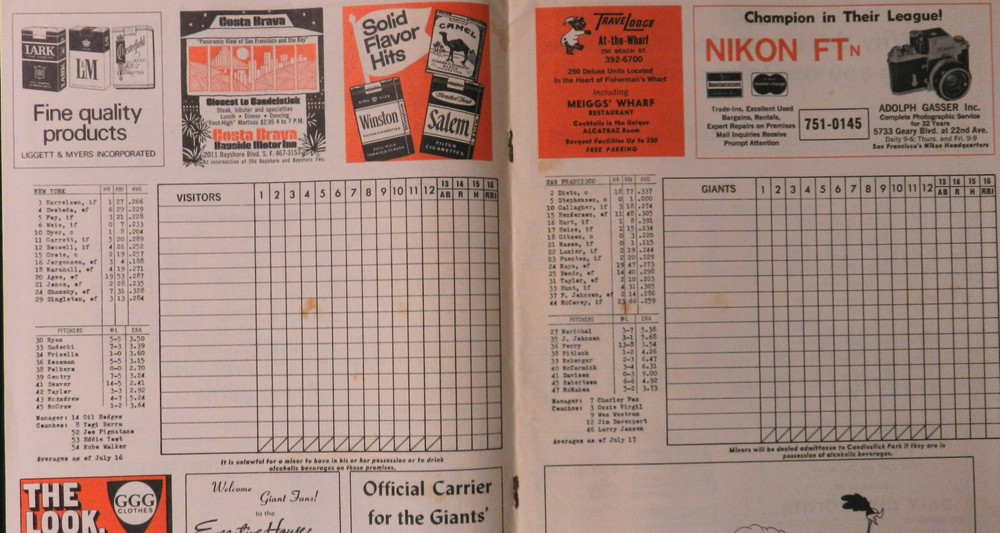 LARK
L&M
Chesterfield
Fine quality
products
LIGGETT & MYERS INCORPORATED
Costa Brava
"Panoramic View of San Francisco and the Bay"
Closest to Candlestick
Steak, lobster and specialties
Lunch • Dinner • Dancing
"Foot-High" Martinis $2.95 4 to 7 P.M.
Costa Brava
Bayside Motor Inn
2011 Bayshore Blvd. S. F. 467-3157
At intersection of Old Bayshore and Bayshore Fwy.
Solid
Flavor
Hits
CAMEL
KING SIZE
Winston
Salem
FILTER CIGARETTES
TRAVELODGE
At-the-Wharf
250 BEACH ST.
392-6700
250 Deluxe Units Located
In the Heart of Fisherman's Wharf
Including
MEIGGS' WHARF
RESTAURANT
Cocktails in the Unique
ALCATRAZ Room
Banquet Facilities Up to 250
FREE PARKING
Champion in Their League!
NIKON FTN
Trade-Ins, Excellent Used
Bargains, Rentals,
Expert Repairs on Premises
Mail Inquiries Receive
Prompt Attention
751-0145
ADOLPH GASSER Inc.
Complete Photographic Service
for 32 Years
5733 Geary Blvd. at 22nd Ave.
Daily 9-6; Thurs. and Fri. 9-9
San Francisco's Nikon Headquarters
NEW YORK HR RBI AVG
3 Harrelson, if 1 27 .266
4 Swoboda, of 6 29 .229
5 Foy, if 3 21 .228
6 Weis, if 0 7 .233
10 Dyer, c 1 8 .204
11 Garrett, if 5 20 .289
12 Boswell, if 4 26 .252
15 Grote, c 2 19 .257
16 Jorgensen, of 3 4 .188
18 Marshall, of 4 19 .271
20 Agee, of 19 53 .287
21 Jones, of 2 28 .235
24 Shamsky, of 7 31 .328
29 Singleton, of 3 13 .284
PITCHERS W-L ERA
30 Ryan 5-5 3.50
33 Sadecki 7-3 3.39
34 Frisella 1-0 3.60
36 Koosman 5-5 3.15
38 Folkers 0-0 2.70
39 Gentry 7-5 3.24
41 Seaver 14-5 2.41
42 Taylor 3-3 2.92
43 McAndrew 4-7 5.24
45 McGraw 1-2 3.64
Manager: 14 Gil Hodges
Coaches: 8 Yogi Berra
52 Joe Pignatano
53 Eddie Yost
54 Rube Walker
Averages as of July 16
VISITORS 1 2 3 4 5 6 7 8 9 10 11 12 13 AB 14 R 15 H 16 RBI
It is unlawful for a minor to have in his or her possession or to drink
alcoholic beverages on these premises.
SAN FRANCISCO HR RBI AVG
2 Dietz, c 18 77 .337
5 Stephenson, c 0 1 .000
10 Gallagher, if 3 18 .274
15 Henderson, of 11 48 .305
16 Hart, if 1 8 .391
17 Heise, if 1 15 .234
18 Gibson, c 0 3 .220
21 Mason, if 0 1 .115
22 Lanier, if 2 19 .244
23 Fuentes, if 2 20 .229
24 Mays, of 19 47 .273
25 Bonds, of 14 40 .298
31 Taylor, of 2 10 .203
33 Hunt, if 4 31 .305
37 F. Johnson, of 2 14 .286
44 McCovey, if 23 66 .259
PITCHERS W-L ERA
27 Marichal 3-7 5.38
35 J. Johnson 3-1 5.68
36 Perry 13-8 3.54
38 Pitlock 1-2 4.26
39 Reberger 2-3 6.47
40 McCormick 3-4 6.31
41 Davison 0-3 9.00
45 Robertson 6-6 4.92
47 McMahon 5-2 3.73
Manager: 7 Charley Fox
Coaches: 3 Ozzie Virgil
9 Wes Westrum
12 Jim Davenport
46 Larry Jansen
Averages as of July 17
GIANTS 1 2 3 4 5 6 7 8 9 10 11 12 13 AB 14 R 15 H 16 RBI
Minors will be denied admittance to Candlestick Park if they are in
possession of alcoholic beverages.
THE
LOOK.
GGG
CLOTHES
Welcome
Giant Fans!
to the
Executive House
Official Carrier
for the Giants'